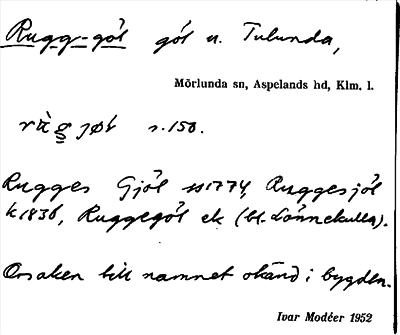 Rugg-göl göl u. Tulunda,
Mörlunda sn, Aspelands hd, Klm. l.
s. 150.
Rugges Gjöl 1774, Ruggesjöl
k 1836, Ruggegöl ek (bl. Lönnekulla).
Orsaken till namnet okänd i bygden.
Ivar Modéer 1952